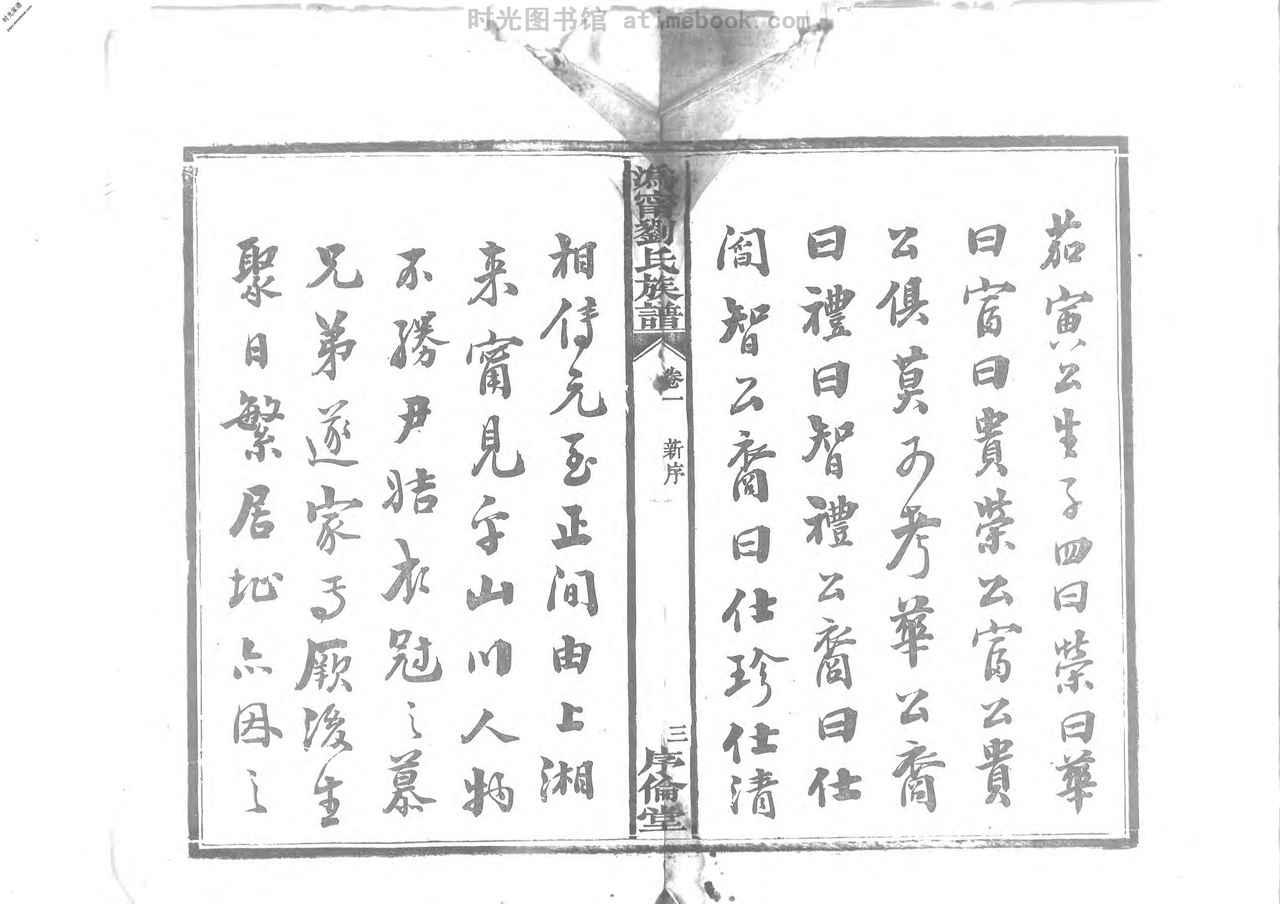 时光图书馆 atimebook.com
茹寅公生子四曰榮曰華
曰富曰貴榮公富公貴
公俱莫可考華公裔
曰禮曰智禮公裔曰仕
閻智公裔曰仕珍仕清
溈甯劉氏族譜
卷一 新序
三
序倫堂
相傳元至正間由上湘
來甯見乎山川人物
不勝尹姞衣冠之慕
兄弟遂家焉厥後生
聚日繁居址亦因之